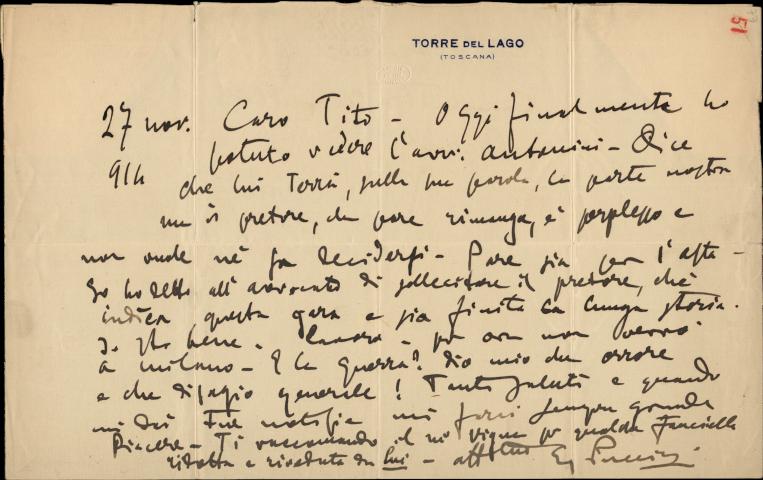 51
TORRE DEL LAGO
(TOSCANA)
27 nov. Caro Tito - Oggi finalmente ho
914 potuto vedere l'avv. Antonini - Dice
che lui terrà, sulla sua parola, la parte nostra
ma il pretore, da pare rimanga, è perplesso e
non vuole né sa decidersi - Pare sia per l'asta -
Io ho detto all'avvocato di sollecitare il pretore, ché
indica questa gara e sia finita la lunga storia.
Io sto bene - lavoro - per ora non verrò
a Milano - E la guerra? Dio mio che orrore
e che disagio generale! Tanti saluti e quando
mi dai tue notizie mi farai sempre grande
piacere - Ti raccomando il per qualche Fanciulla
ridotta e riveduta da lui - aff tuo G Puccini